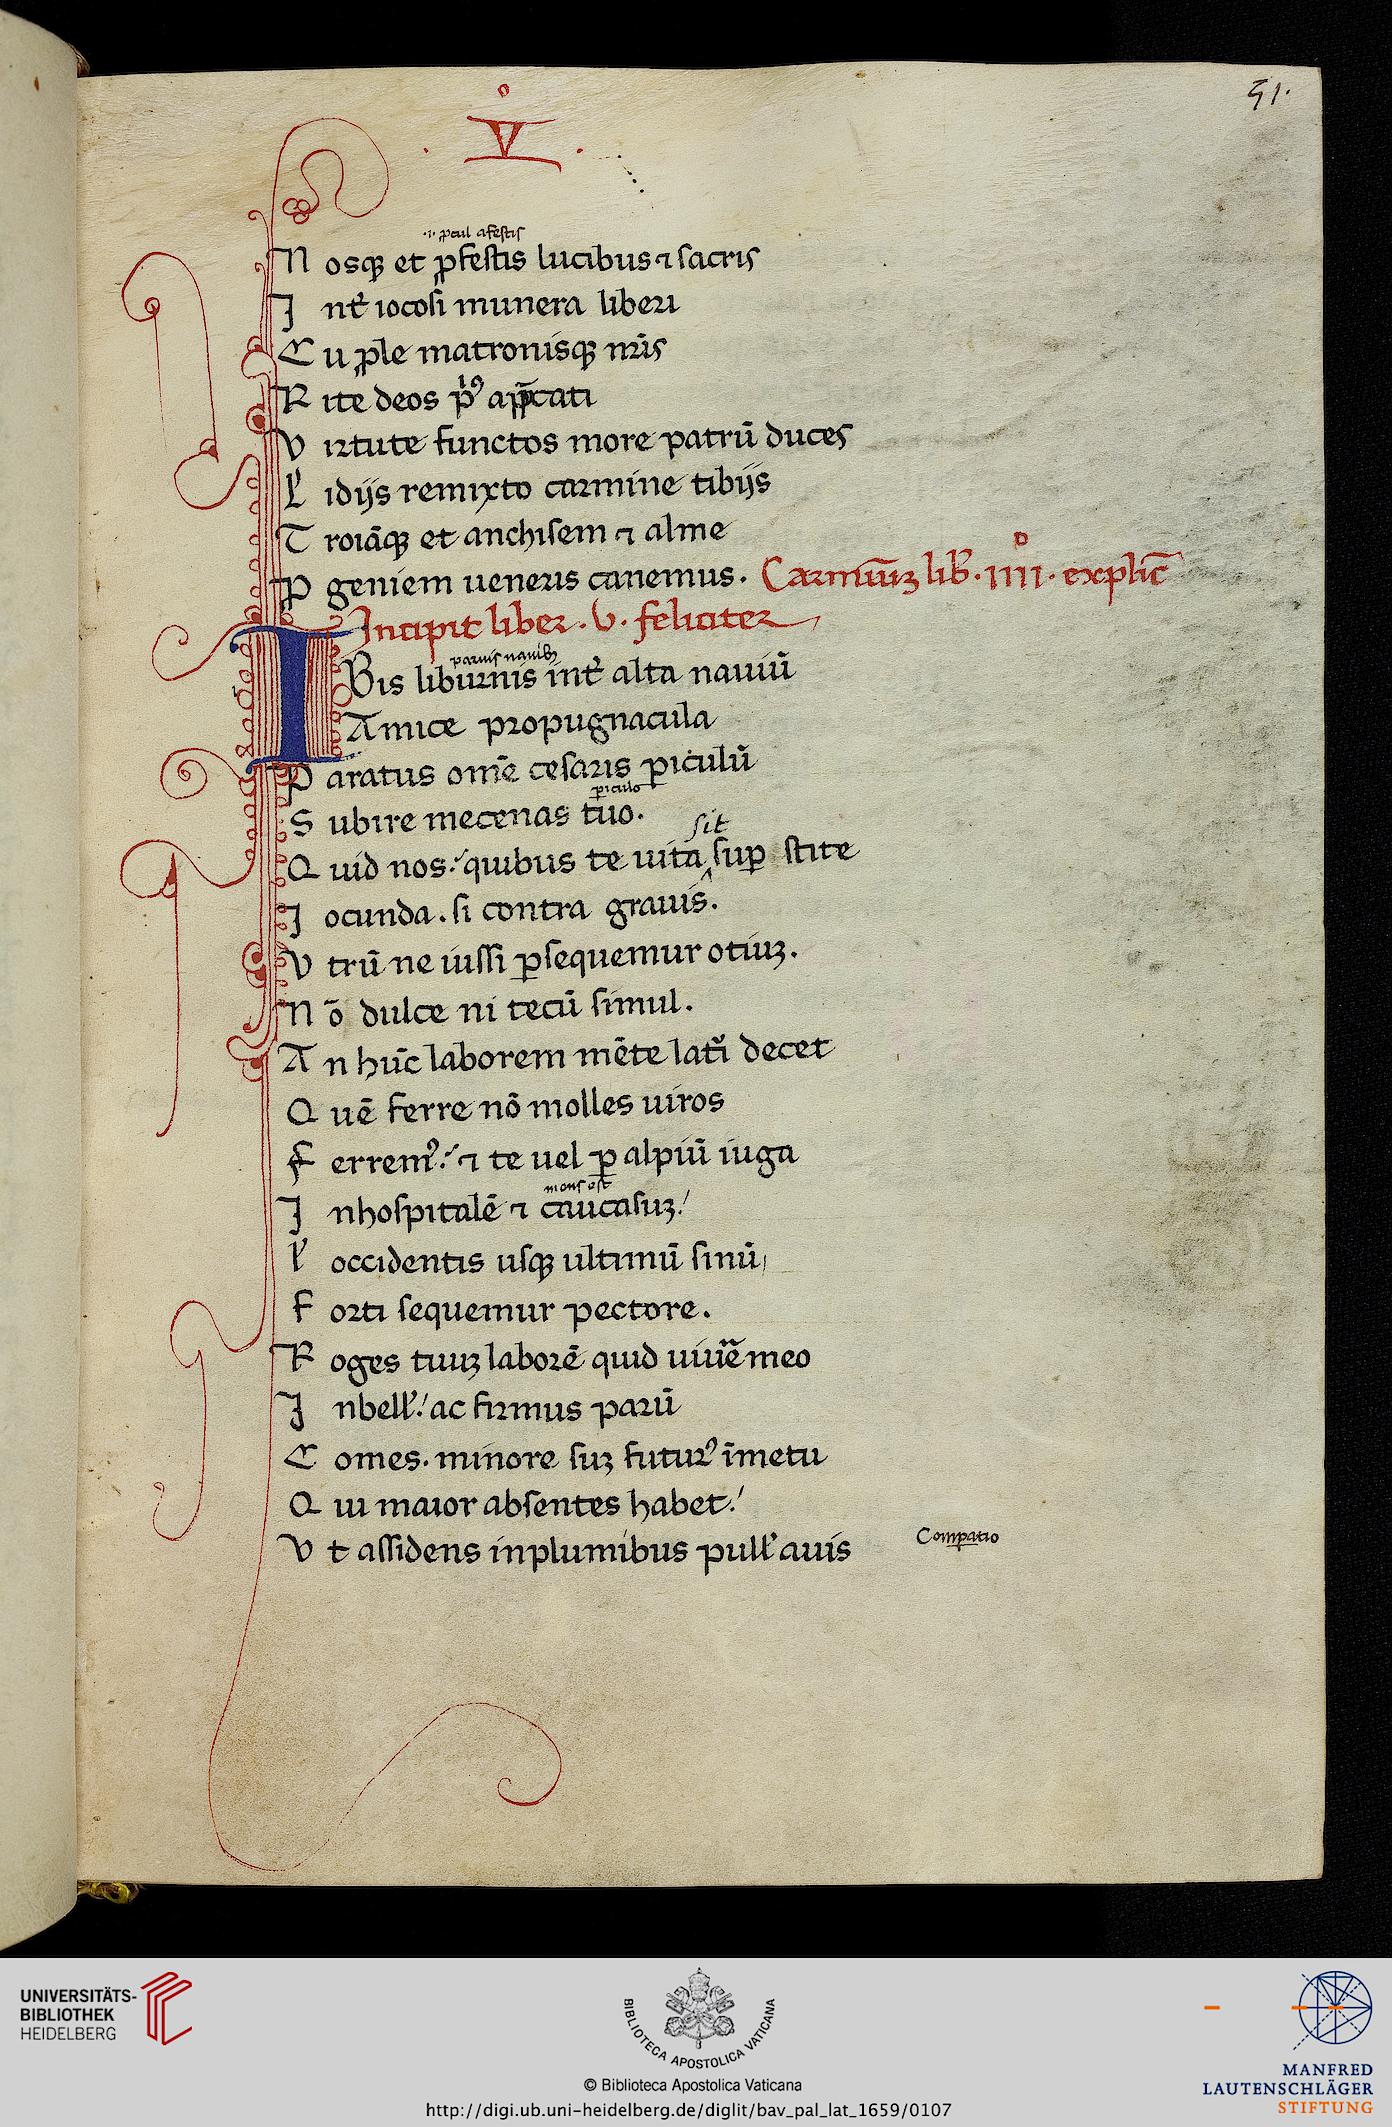 51.
V°
.i. ꝓcul a festis
Nosqꝫ et ꝓfestis lucibus ⁊ sacris
Int̃ iocosi munera liberi
Cu ꝓle matronisqꝫ nr̃is
Rite deos pⁱꝰ app̃cati
Virtute functos more patrũ duces
Lidijs remixto carmine tibijs
Troiãqꝫ et anchisem ⁊ alme
Pgeniem ueneris canemus. Carminũꝫ lib̃. iiii°. explic̃
Incipit liber .v. feliciter
paruis nauibꝫ
IBis liburnis int̃ alta nauiũ
Amice propugnacula
Paratus om̃e cesaris ꝑiculũ
ꝑiculo
Subire mecenas tuo.
sit
Quid nos. quibus te uita suꝑ stite
Iocunda. si contra grauis.
Vtrũ ne iussi ꝑsequemur otiuꝫ.
Nõ dulce ni tecũ simul.
An hũc laborem mẽte lat̃i decet
Quẽ ferre nõ molles uiros
Ferremꝰ. ⁊ te uel ꝑ alpiũ iuga
mons est
Inhospitalẽ ⁊ caucasuꝫ
L occidentis usqꝫ ultimũ sinũ
Forti sequemur pectore.
Roges tuuꝫ laborẽ quid iuuẽ meo
Inbell̓. ac firmus parũ
Comes. minore suꝫ futurꝰ ĩ metu
Qui maior absentes habet.
Vt assidens inplumibus pull̓ auis
Comꝑatio
UNIVERSITÄTS-
BIBLIOTHEK
HEIDELBERG
BIBLIOTECA APOSTOLICA VATICANA
© Biblioteca Apostolica Vaticana
http://digi.ub.uni-heidelberg.de/diglit/bav_pal_lat_1659/0107
MANFRED
LAUTENSCHLÄGER
STIFTUNG